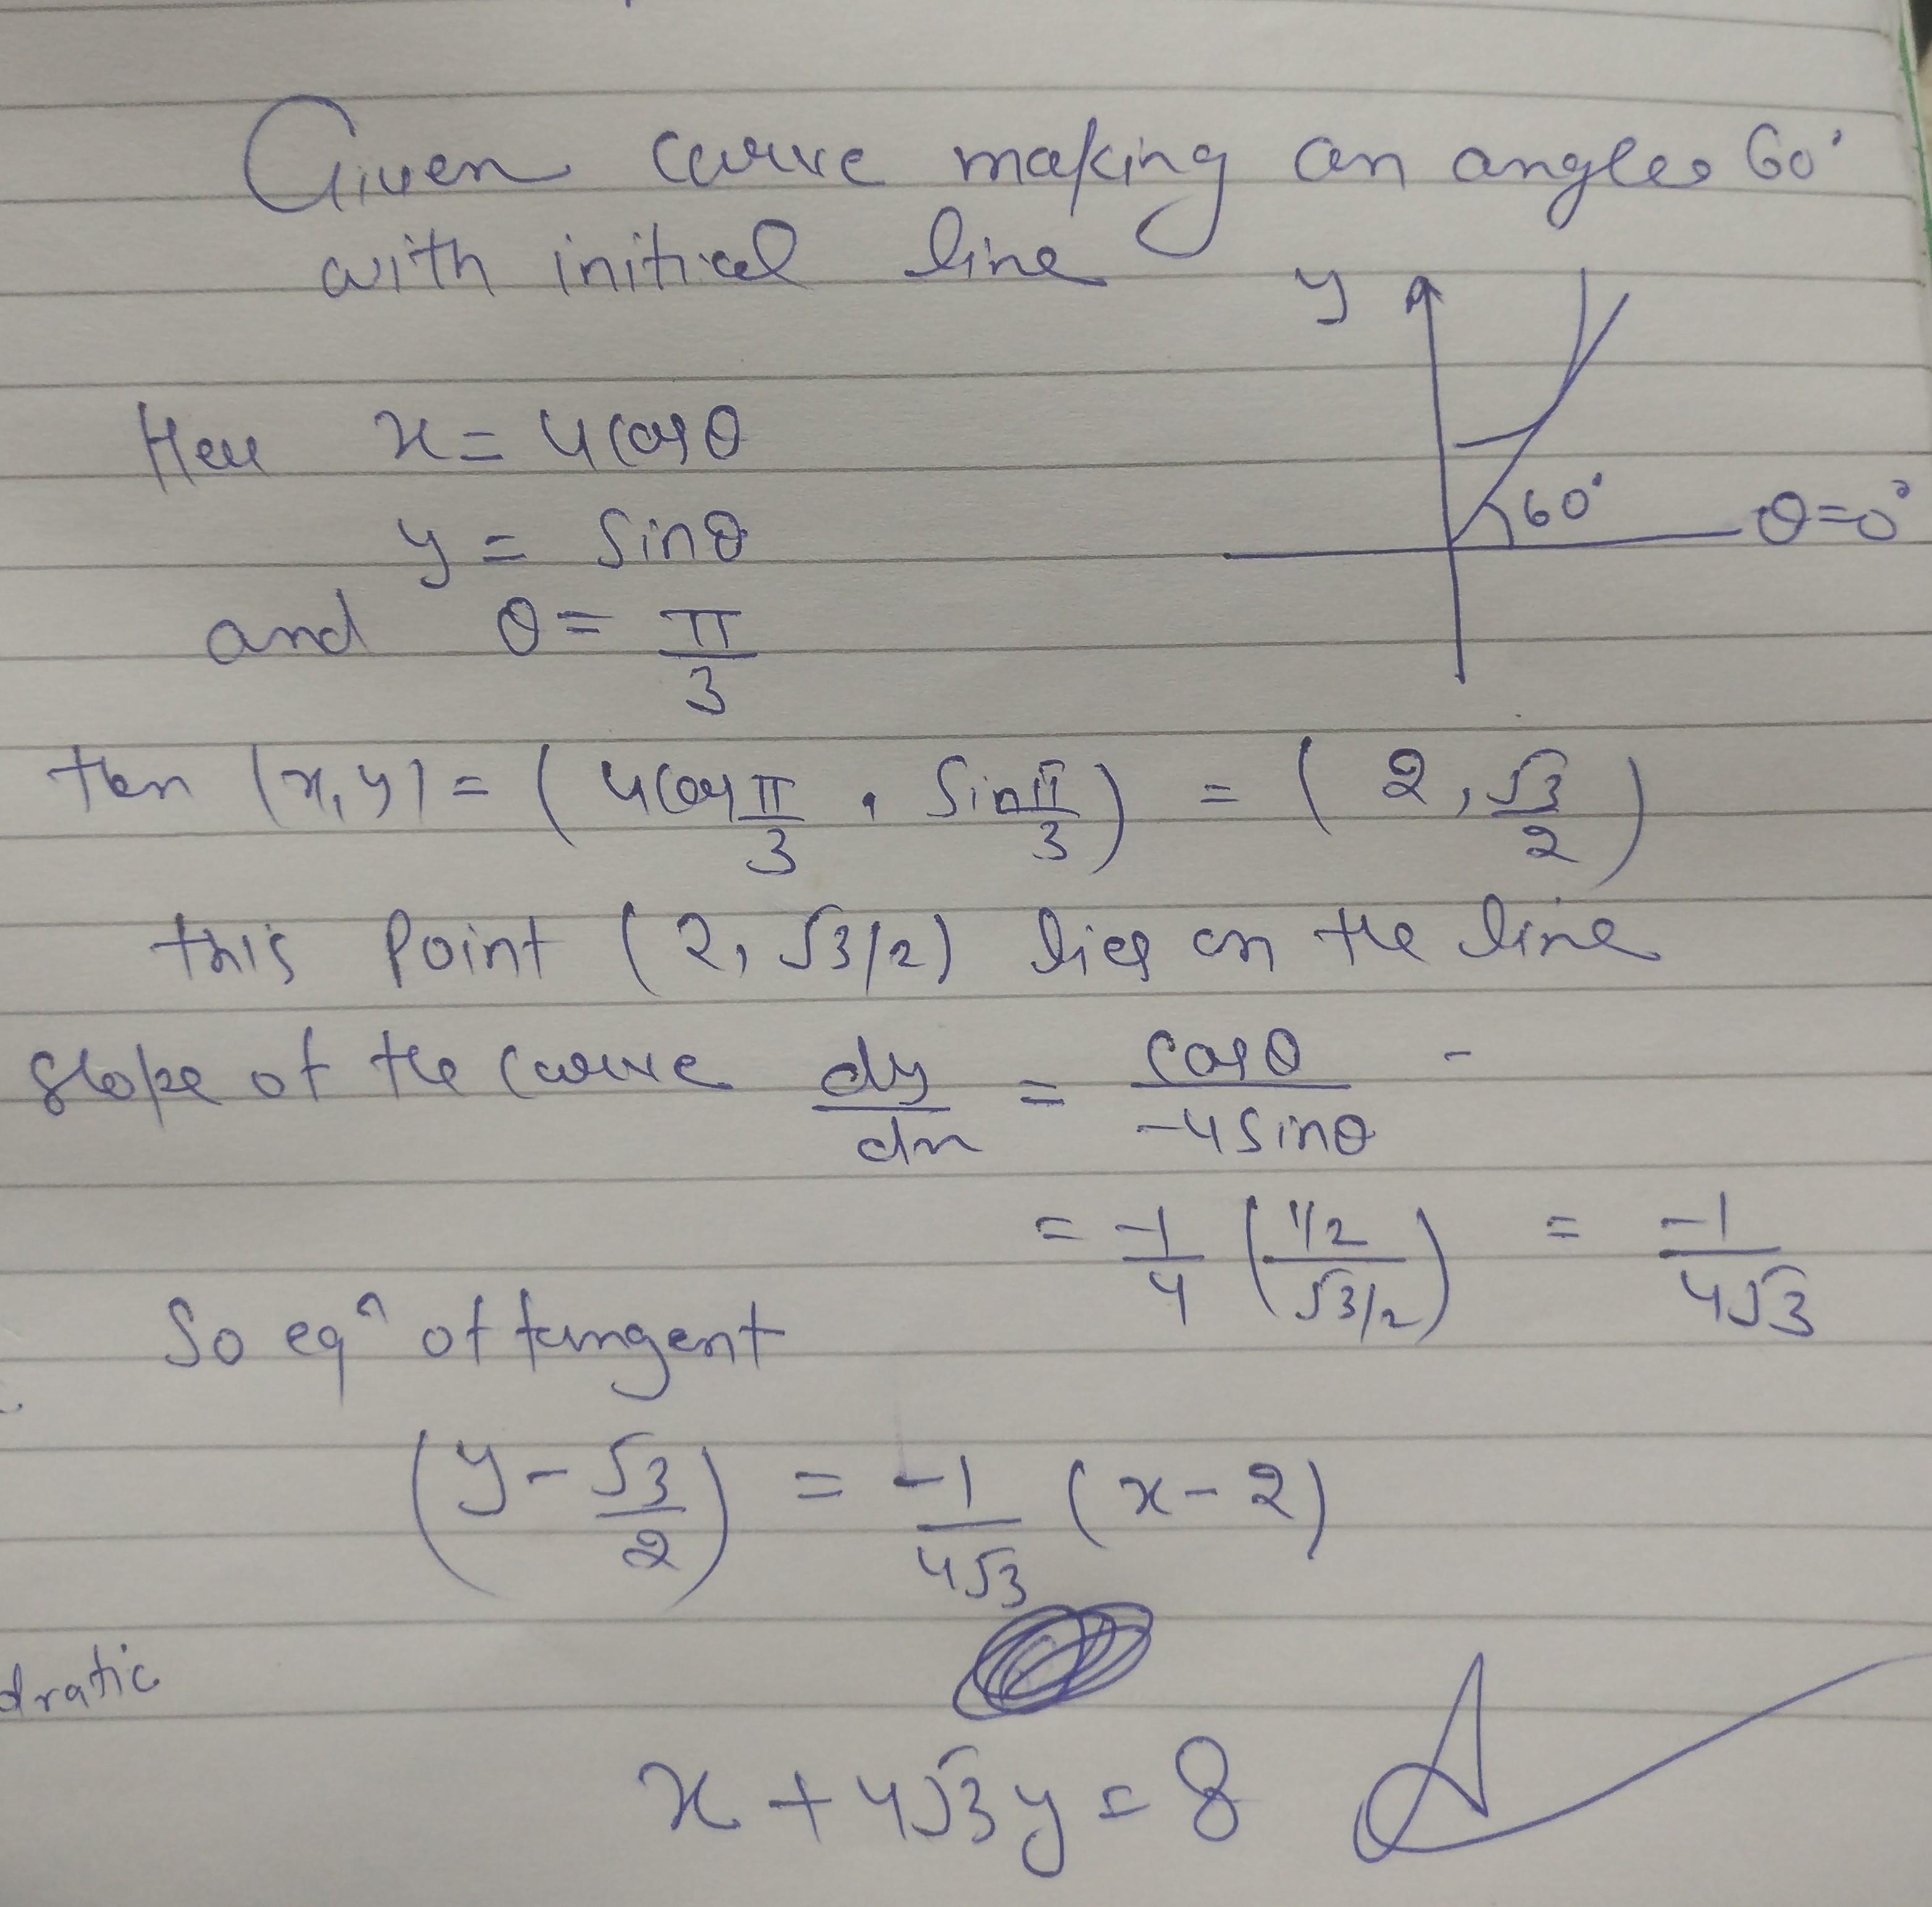 Given curve making an angles 60°
with initial line
y
Here x = 4cosθ
60° θ=0°
y = sinθ
and θ = π/3
then (x, y) = (4cos π/3, sin π/3) = (2, √3/2)
this Point (2, √3/2) lies on the line
slope of the curve dy/dx = cosθ/-4sinθ -
= -1/4 (1/2/√3/2) = -1/4√3
So eqⁿ of tangent
(y - √3/2) = -1/4√3 (x - 2)
dratic
x + 4√3y = 8